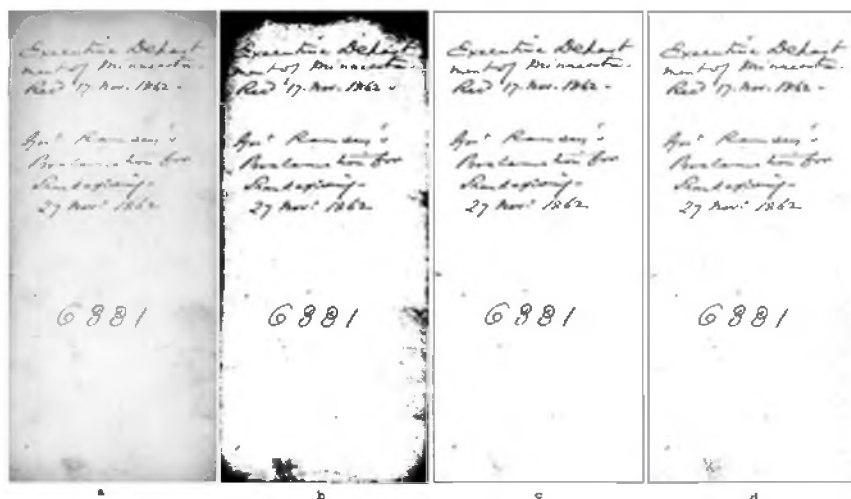 Executive Depart
ment of Minnesota.
Recd 17. Nov. 1862.
Gov. Ramsey's
Proclamation for
Thanksgiving.
27 Nov. 1862
6881
Executive Depart
ment of Minnesota.
Recd 17. Nov. 1862.
Gov. Ramsey's
Proclamation for
Thanksgiving.
27 Nov. 1862
6881
Executive Depart
ment of Minnesota.
Recd 17. Nov. 1862.
Gov. Ramsey's
Proclamation for
Thanksgiving.
27 Nov. 1862
6881
Executive Depart
ment of Minnesota.
Recd 17. Nov. 1862.
Gov. Ramsey's
Proclamation for
Thanksgiving.
27 Nov. 1862
6881
a b c d